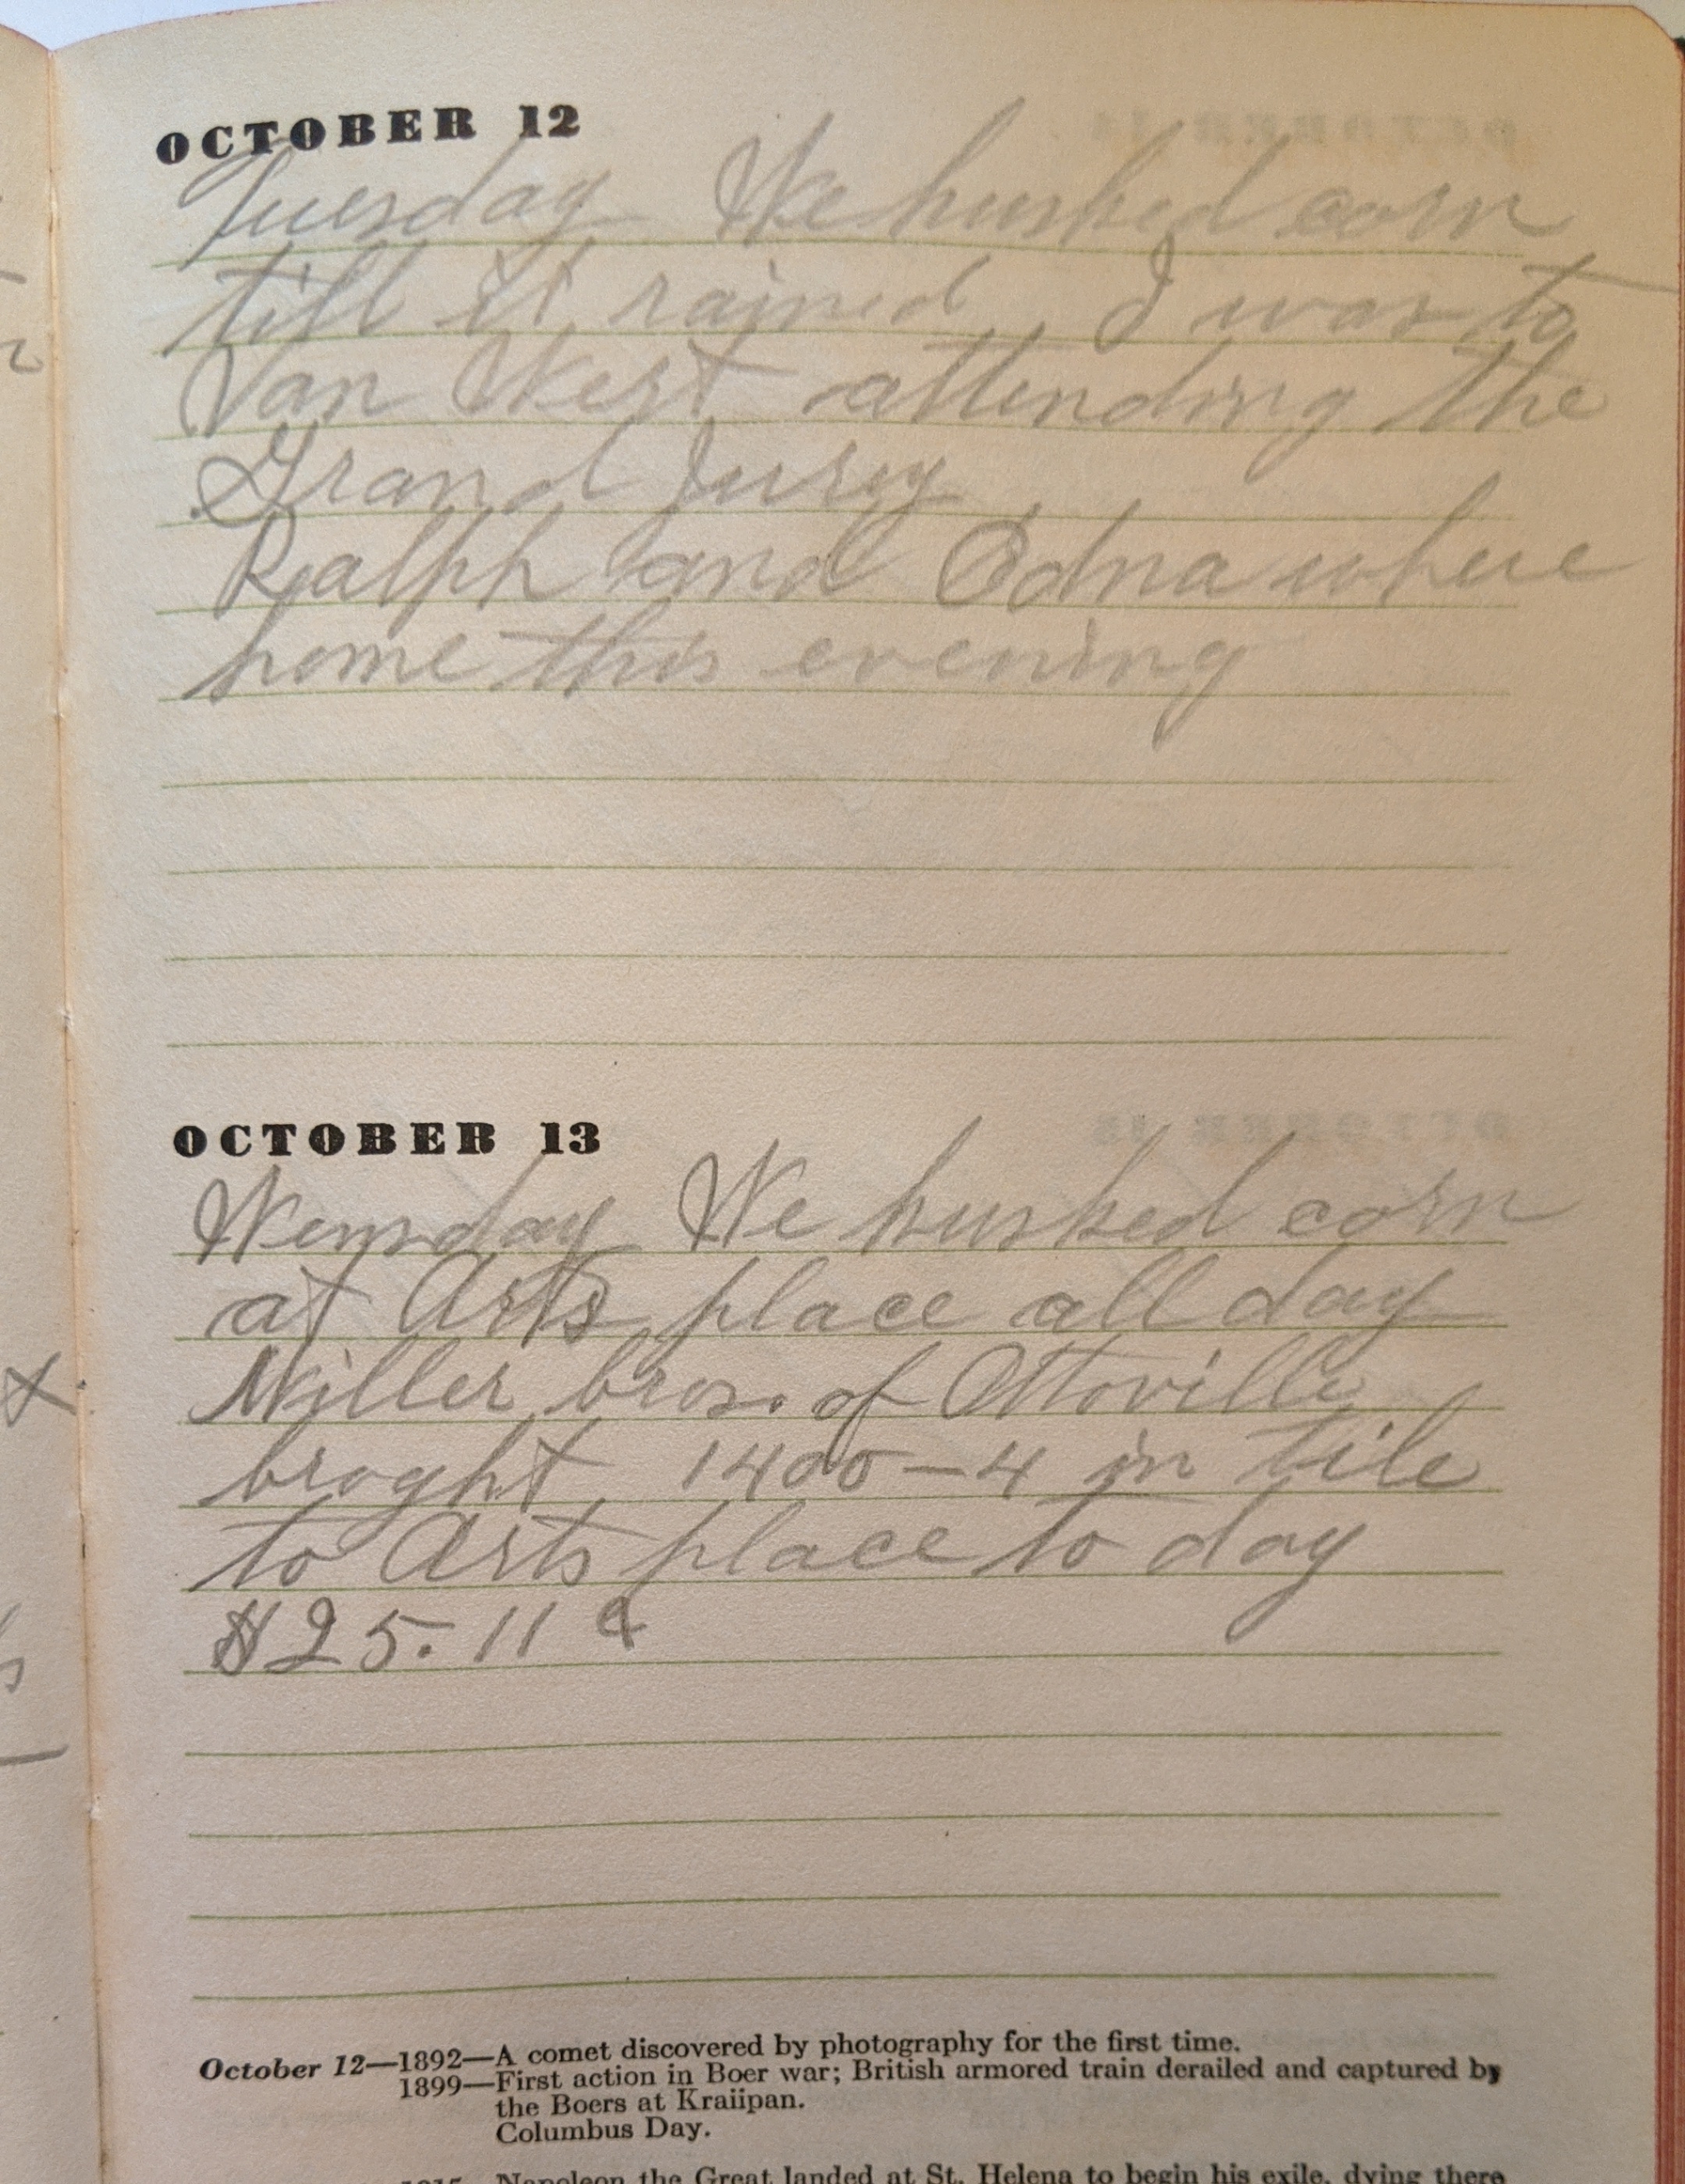 OCTOBER 12
Tuesday We husked corn
till it rained I was to
Van Wert attending the
Grand Jury
Ralph and Edna where
home this evening
OCTOBER 13
Wensday We husked corn
at Arts place all day
Miller bros. of Ottoville
broght 1400-4 in tile
to Arts place to day
$25.11 ¢
October 12—1892—A comet discovered by photography for the first time.
1899—First action in Boer war; British armored train derailed and captured by
the Boers at Kraiipan.
Columbus Day.
1815—Napoleon the Great landed at St. Helena to begin his exile, dying there